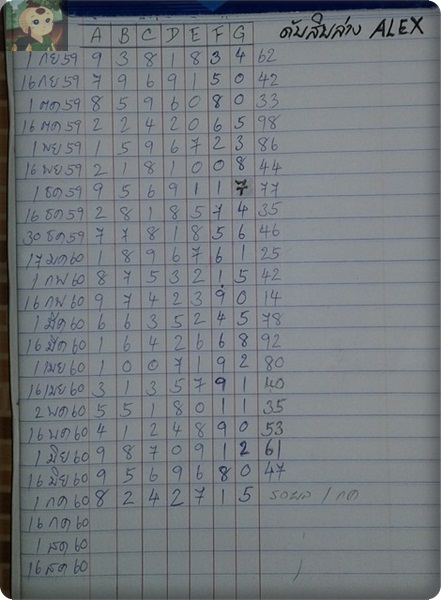 A B C D E F G ดับสิบล่าง ALEX
1 กย 59 9 3 8 1 8 3 4 62
16 กย 59 7 9 6 9 1 5 0 42
1 ตค 59 8 5 9 6 0 8 0 33
16 ตค 59 2 2 4 2 0 6 5 98
1 พย 59 1 5 9 6 7 2 3 86
16 พย 59 2 1 8 1 0 0 8 44
1 ธค 59 9 5 6 9 1 1 7 77
16 ธค 59 2 8 1 8 5 7 4 35
30 ธค 59 7 7 8 1 8 5 6 46
17 มค 60 1 8 9 6 7 6 1 25
1 กพ 60 8 7 5 3 2 1 5 42
16 กพ 60 9 7 4 2 3 9 0 14
1 มีค 60 6 6 3 5 2 4 5 78
16 มีค 60 1 6 4 2 6 6 8 92
1 เมย 60 1 0 0 7 1 9 2 80
16 เมย 60 3 1 3 5 7 9 1 40
2 พค 60 5 5 1 8 0 1 1 35
16 พค 60 4 1 2 4 8 9 0 53
1 มิย 60 9 8 7 0 9 1 2 61
16 มิย 60 9 5 6 9 6 8 0 47
1 กค 60 8 2 4 2 7 1 5 รอผล 1 กค
16 กค 60
1 สค 60
16 สค 60